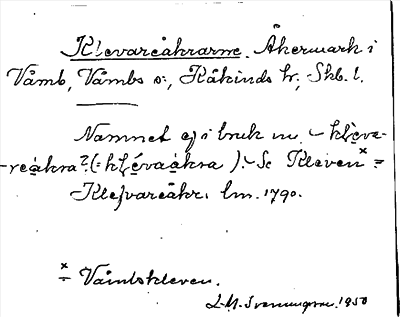 Klevareåkrarne. Åkermark i
Våmb, Våmbs s:, Kåkinds hr, Skb. l.
Namnet ej i bruk nu. – kļeva-
-reåkra? (= kļévaåkra ). – Se Kleven x =
Klefvareåkr. lm. 1790.
x = Våmbskleven.
L-M. Svenungsson. 1950